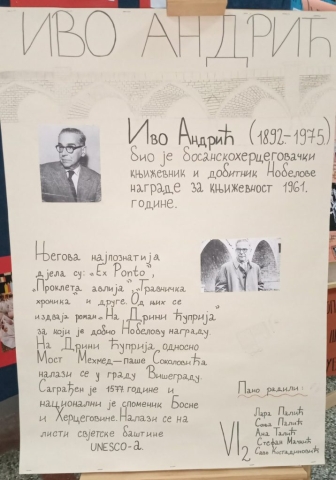 ИВО АНДРИЋ
Иво Андрић (1892-1975)
био је босанскохерцеговачки
књижевник и добитник Нобелове
награде за књижевност 1961.
године.
Његова најпознатија
дјела су: „Ex Ponto",
„Проклета авлија", „Травничка
хроника" и друге. Од њих се
издваја роман „На Дрини ћуприја"
за који је добио Нобелову награду.
На Дрини ћуприја односно
Мост Мехмед-паше Соколовића
налази се у граду Вишеграду.
Саграђен је 1577 године и
национални је споменик Босне
и Херцеговине. Налази се на
листи свјетске баштине
UNESCO-а.
Пано радили:
VI2
Лара Палић
Соња Палић
Ана Талић
Стефан
Саво